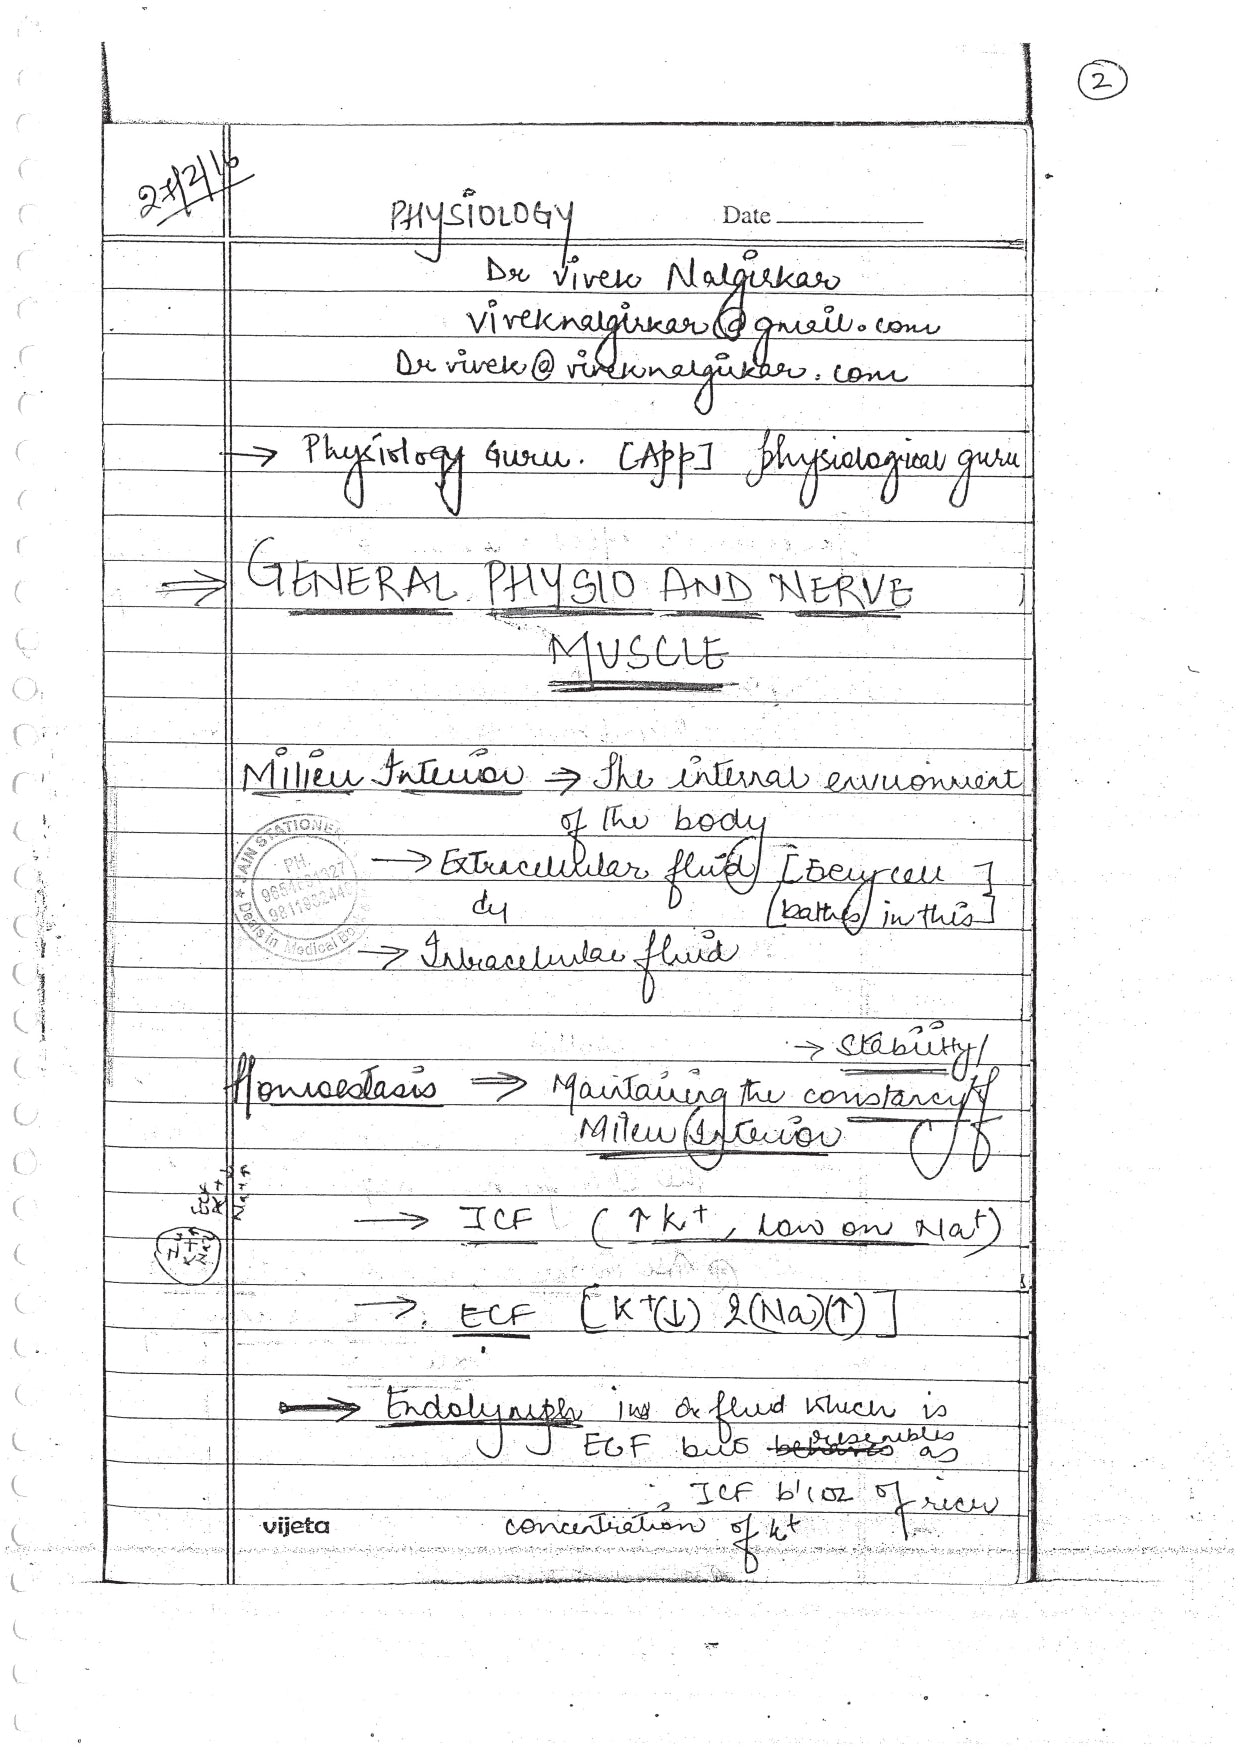 2
27/2/16
PHYSIOLOGY Date
Dr Vivek Nalgirkar
viveknalgirkar@gmail.com
Dr vivek@viveknalgirkar.com
→ Physiology Guru. [App] physiological guru
⇒ GENERAL PHYSIO AND NERVE
MUSCLE
Milieu Interior ⇒ The internal environment
of the body
→ Extracellular fluid [Every cell]
[bathes in this]
→ Intracellular fluid
JAIN STATIONE
PH.
Deals in Medical
→ Stability/
Homoestasis ⇒ Maintaining the constancy of
Milieu Interior
→ ICF (↑ K+, low on Na+)
→ ECF [K+(↓) & (Na)(↑)]
→ Endolymph is a fluid which is
ECF but resembles as
ICF b'coz of
concentration of K+
vijeta